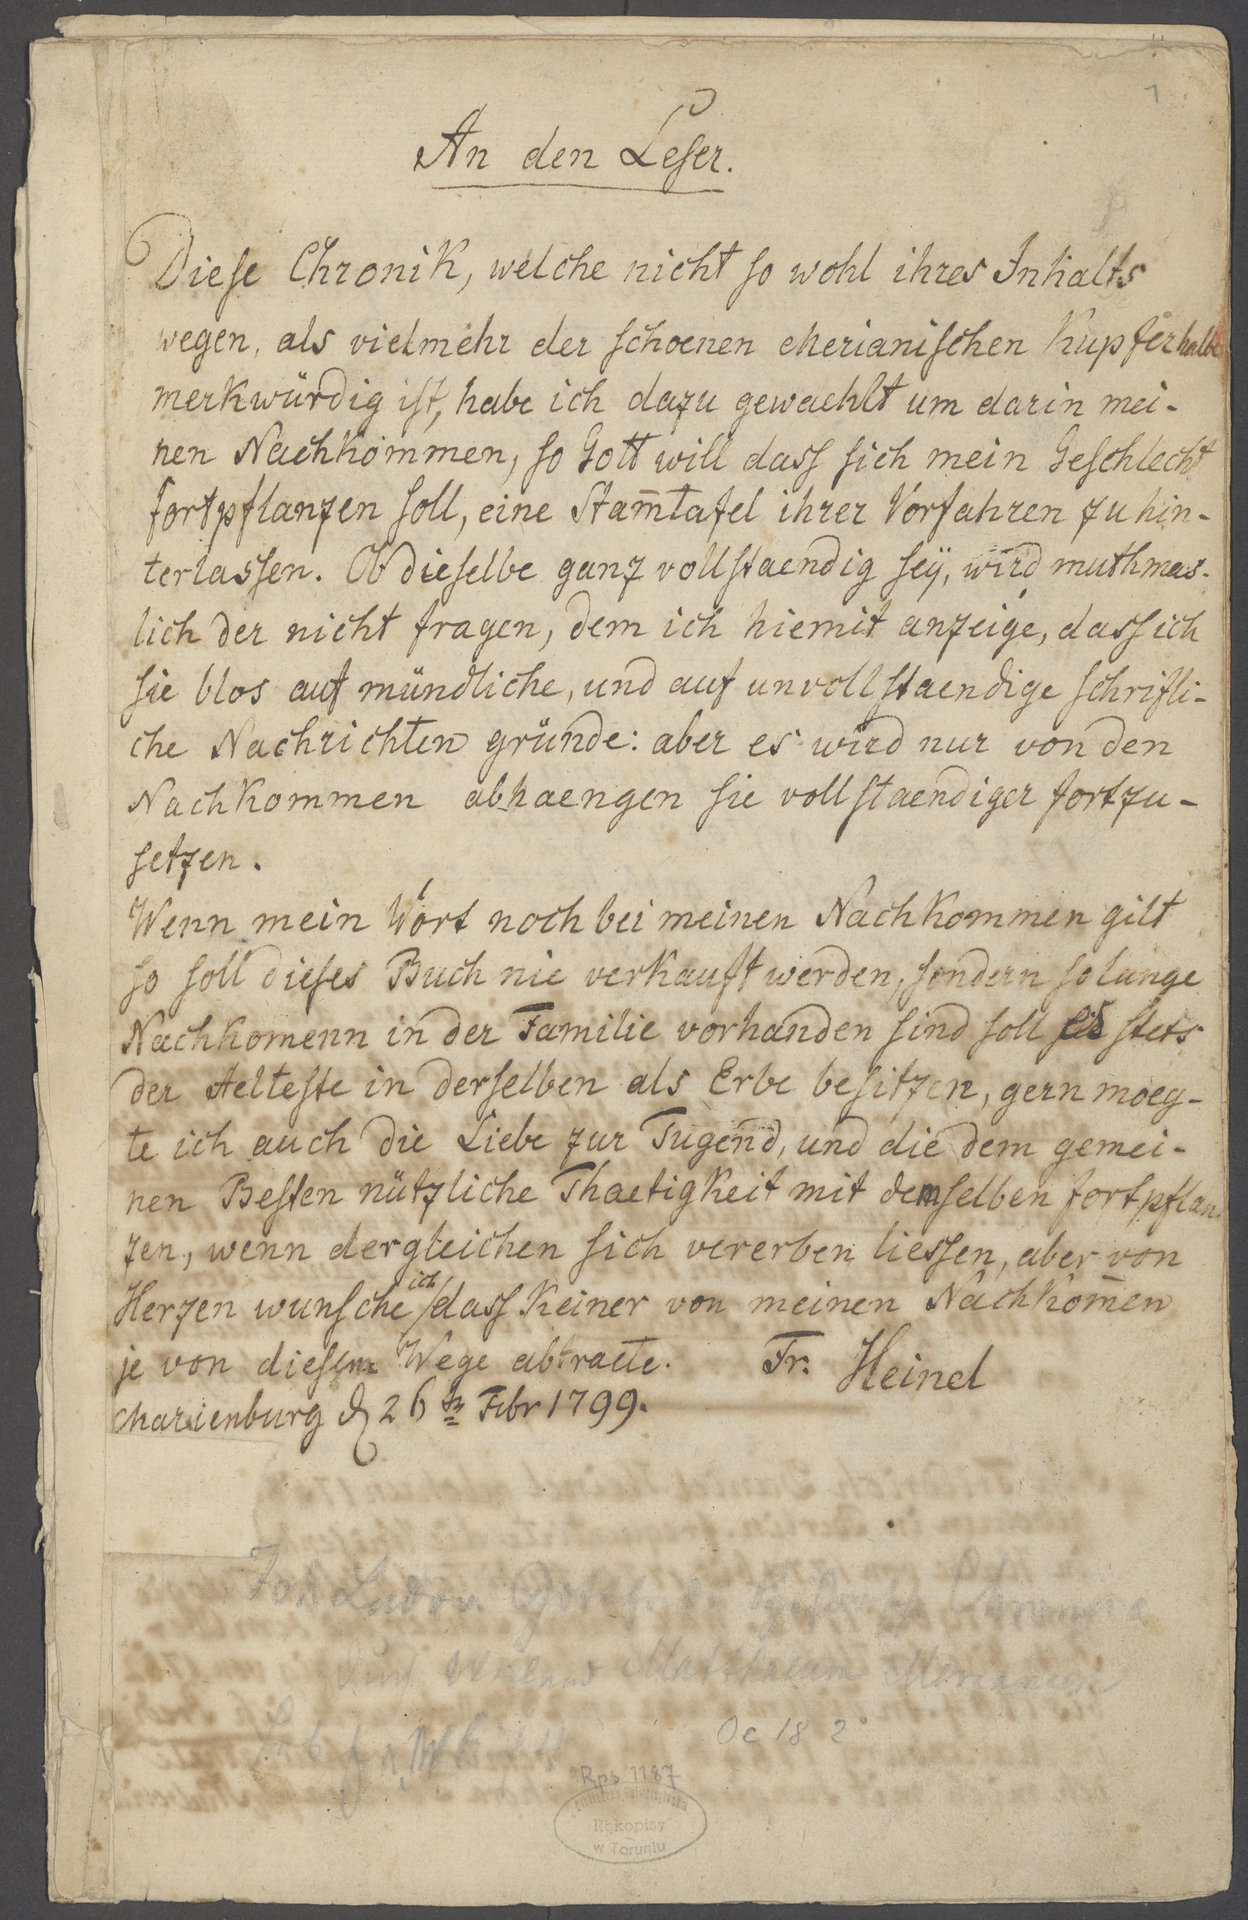 1
An den Leser.
Diese Chronik, welche nicht so wohl ihres Inhalts
wegen, als vielmehr der schoenen Merianischen Kupfer halbe
merkwürdig ist, habe ich dazu gewaehlt um darin mei-
nen Nachkommen, so Gott will dass sich mein Geschlecht
fortpflanzen soll, eine Stam̄tafel ihrer Vorfahren zu hin-
terlassen. Ob dieselbe ganz vollstaendig seÿ, wird muthmas-
lich der nicht fragen, dem ich hiemit anzeige, dass ich
sie blos auf mündliche, und auf unvollstaendige schriftli-
che Nachrichten gründe: aber es wird nur von den
Nachkommen abhaengen sie vollstaendiger fortzu-
setzen.
Wenn mein Wort noch bei meinen Nachkommen gilt
so soll dieses Buch nie verkauft werden, sondern so lange
Nachkomenn in der Familie vorhanden sind soll es stets
der Aelteste in derselben als Erbe besitzen, gern moeg-
te ich auch die Liebe zur Tugend, und die dem gemei-
nen Besten nützliche Thaetigkeit mit demselben fortpflan-
zen, wenn dergleichen sich vererben liessen, aber von
Herzen wunsche ich dass Keiner von meinen Nachkom̄en
je von diesem Wege abtraete. Fr. Heinel
Marienburg d 26 tn Febr 1799.
Joh Ludov. Gottf.
Matthaeum Merianum
Oc 18 2°
Rps 1187
Rękopisy
w Toruniu